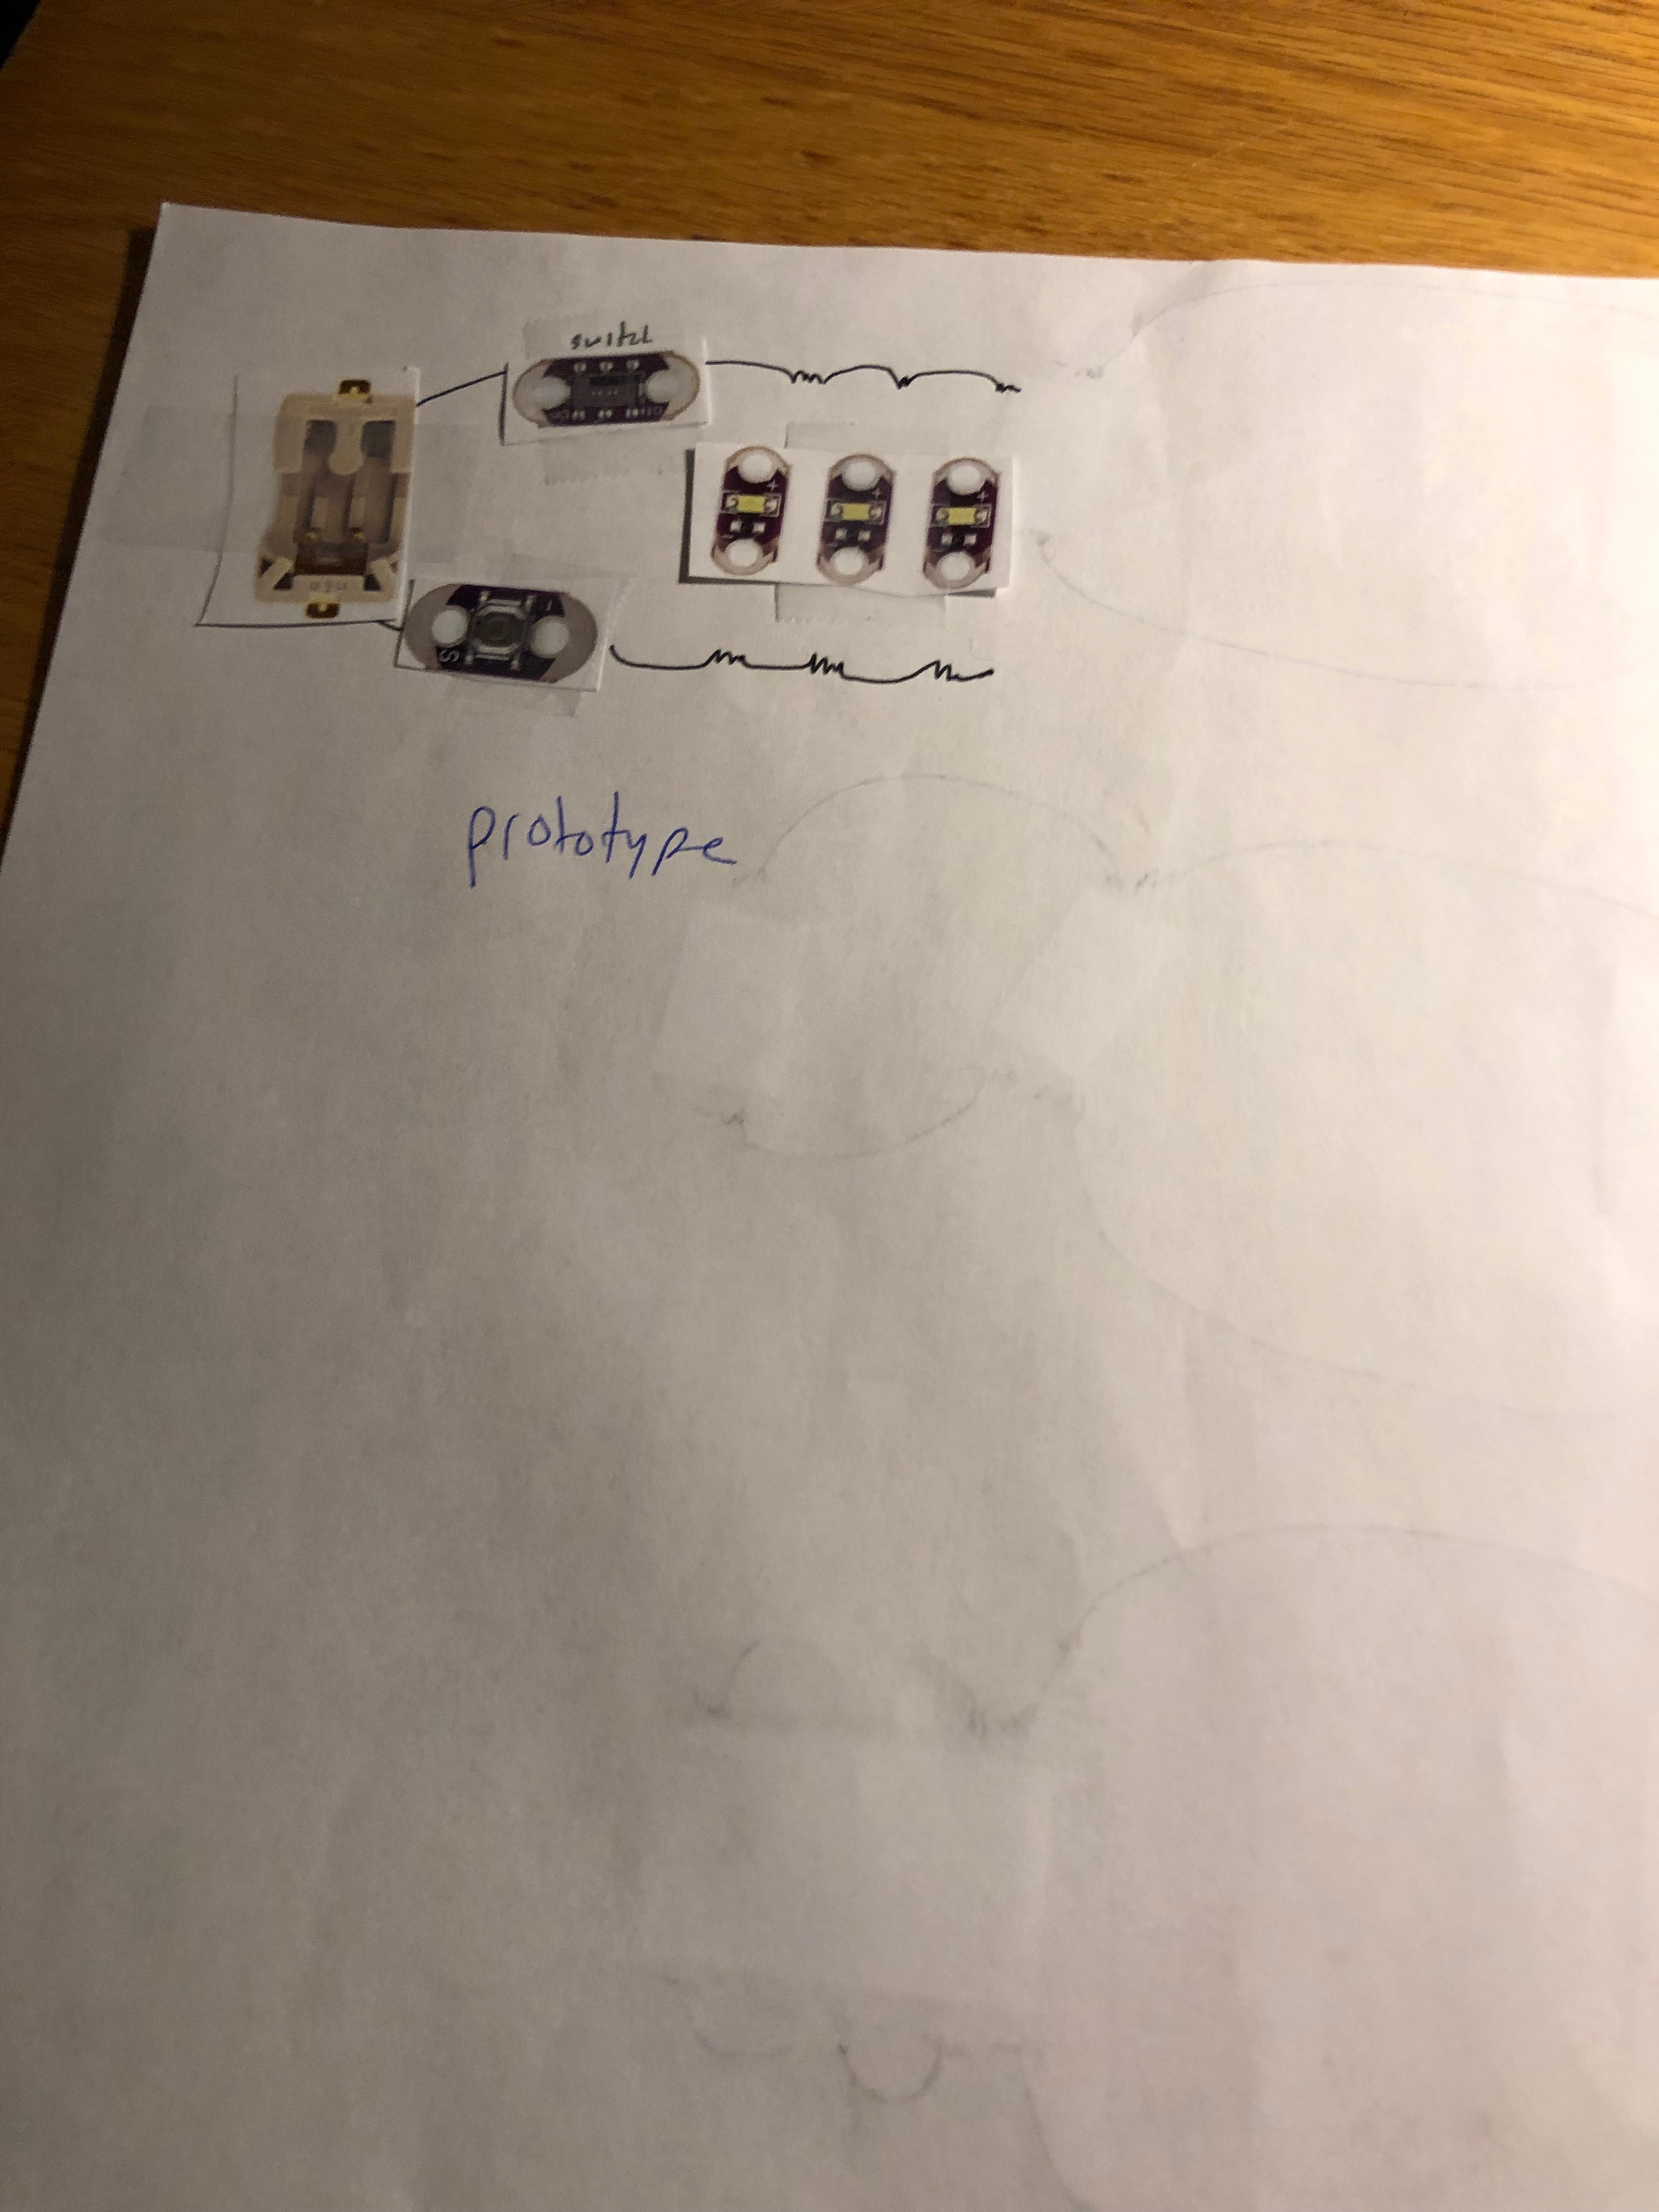 switch
+ + +
S
prototype